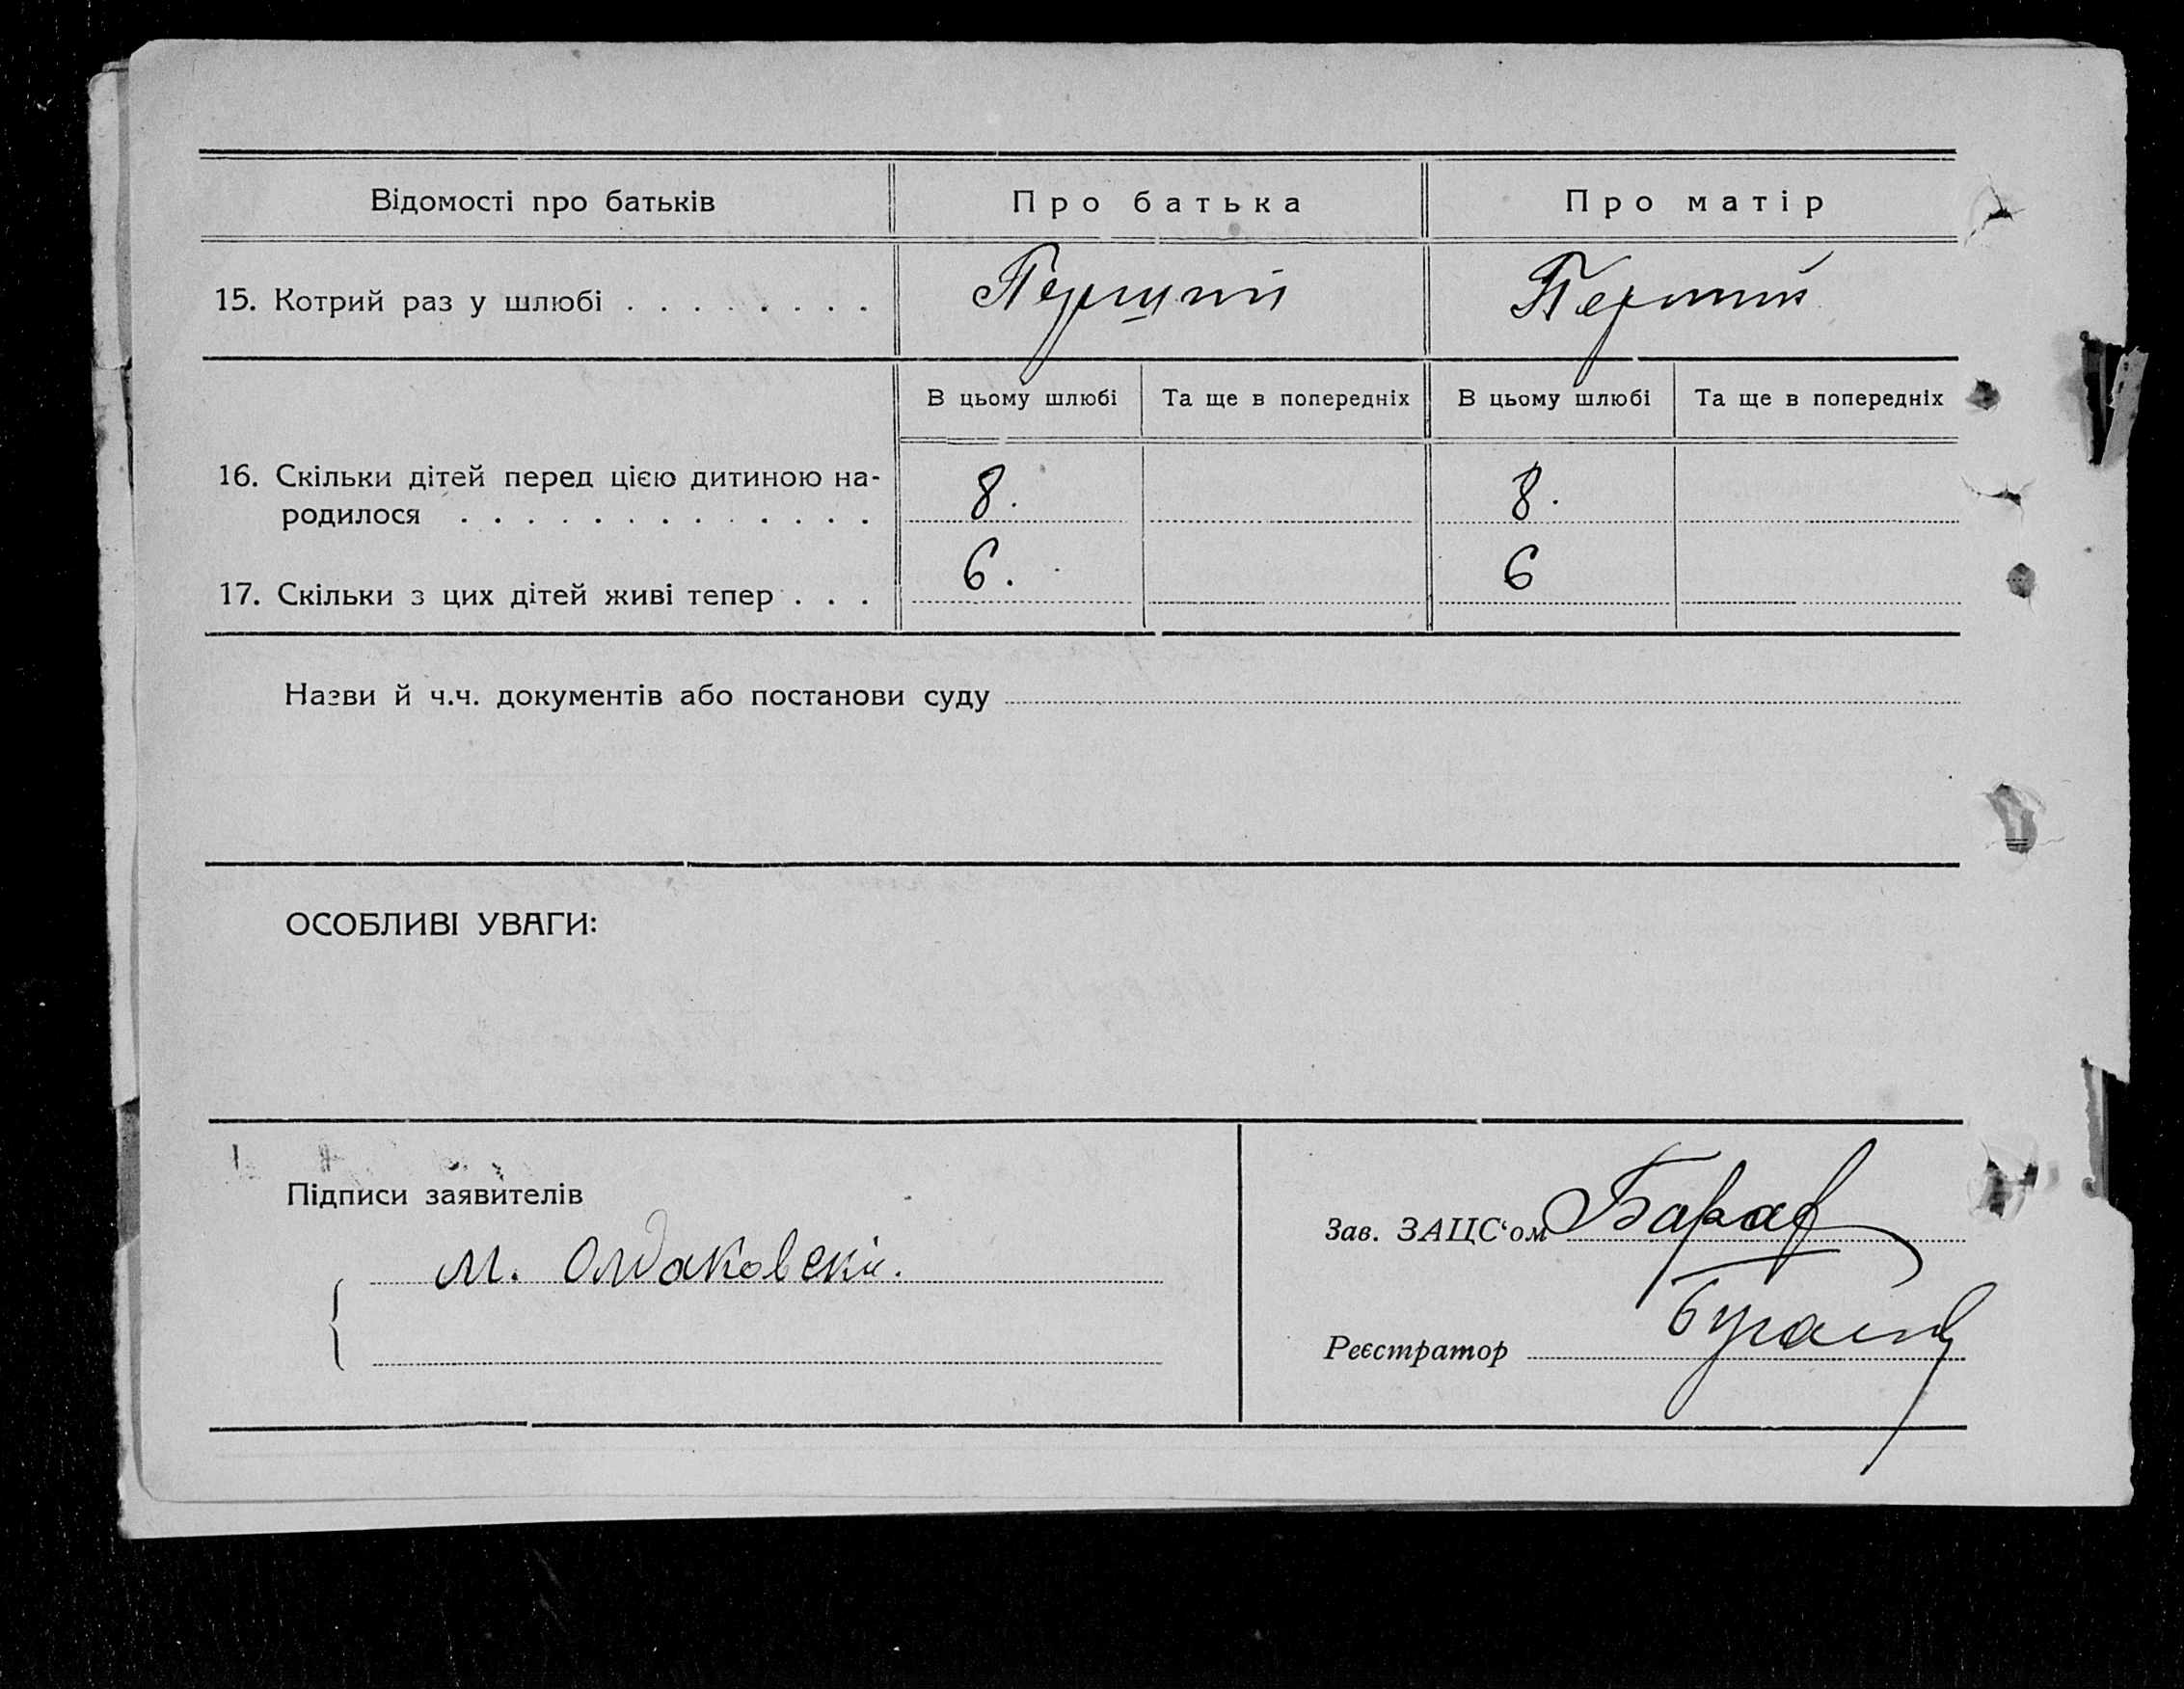 Відомості про батьків Про батька Про матір
15. Котрий раз у шлюбі . . . . . . . . Перший Перший
В цьому шлюбі Та ще в попередніх В цьому шлюбі Та ще в попередніх
16. Скільки дітей перед цією дитиною на-
родилося . . . . . . . . . . . . . 8. 8.
17. Скільки з цих дітей живі тепер . . . 6. 6
Назви й ч.ч. документів або постанови суду
ОСОБЛИВІ УВАГИ:
Підписи заявителів
Зав. ЗАЦС‘ом
М.
Реєстратор